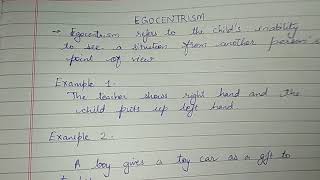 EGOCENTRISM
→ Egocentrism refers to the child's inability
to see a situation from another person's
point of view
Example 1.
The teacher shows right hand and the
child picks up left hand.
Example 2.
A boy gives a toy car as a gift to